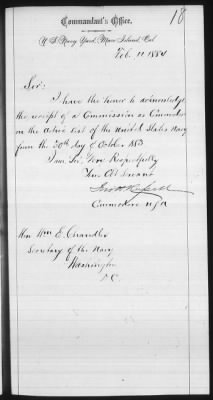 18
Commandant's Office,
U. S. Navy Yard, Mare Island, Cal.
Feb. 11 1884
Sir:
I have the honor to acknowledge
the receipt of a Commission as Commodore
on the Active List of the United States Navy
from the 30th day of October 1883
I am Sir: Very Respectfully
Your Obt Servant
Jno H Russell
Commodore USN
Hon Wm E. Chandler
Secretary of the Navy
Washington
D.C.